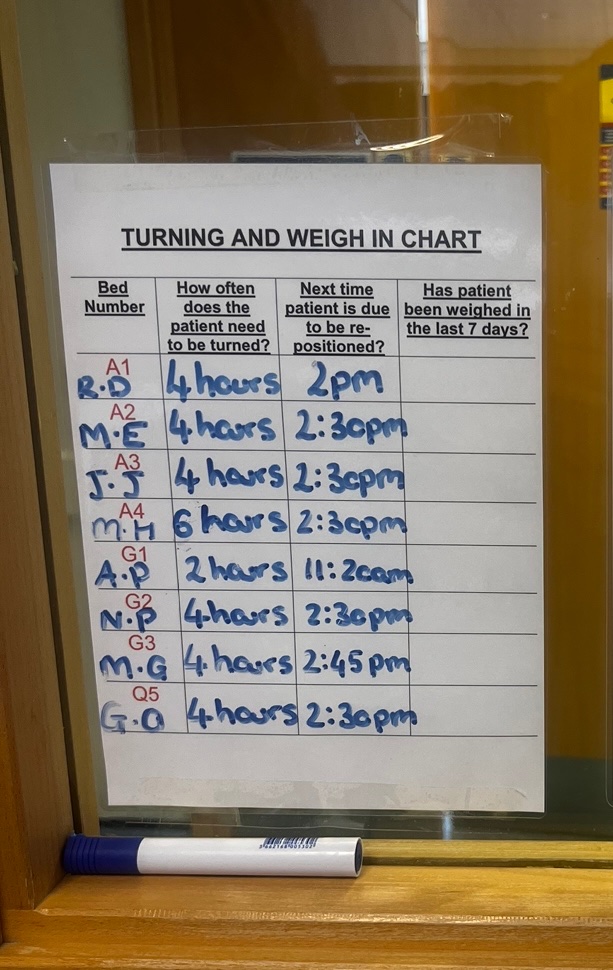 TURNING AND WEIGH IN CHART
Bed Number
How often does the patient need to be turned?
Next time patient is due to be re-positioned?
Has patient been weighed in the last 7 days?
A1
R.D 4 hours 2pm
A2
M.E 4 hours 2:30pm
A3
J.J 4 hours 2:30pm
A4
M.H 6 hours 2:30pm
G1
A.P 2 hours 11:20am
G2
N.P 4 hours 2:30pm
G3
M.G 4 hours 2:45pm
Q5
G.O 4 hours 2:30pm